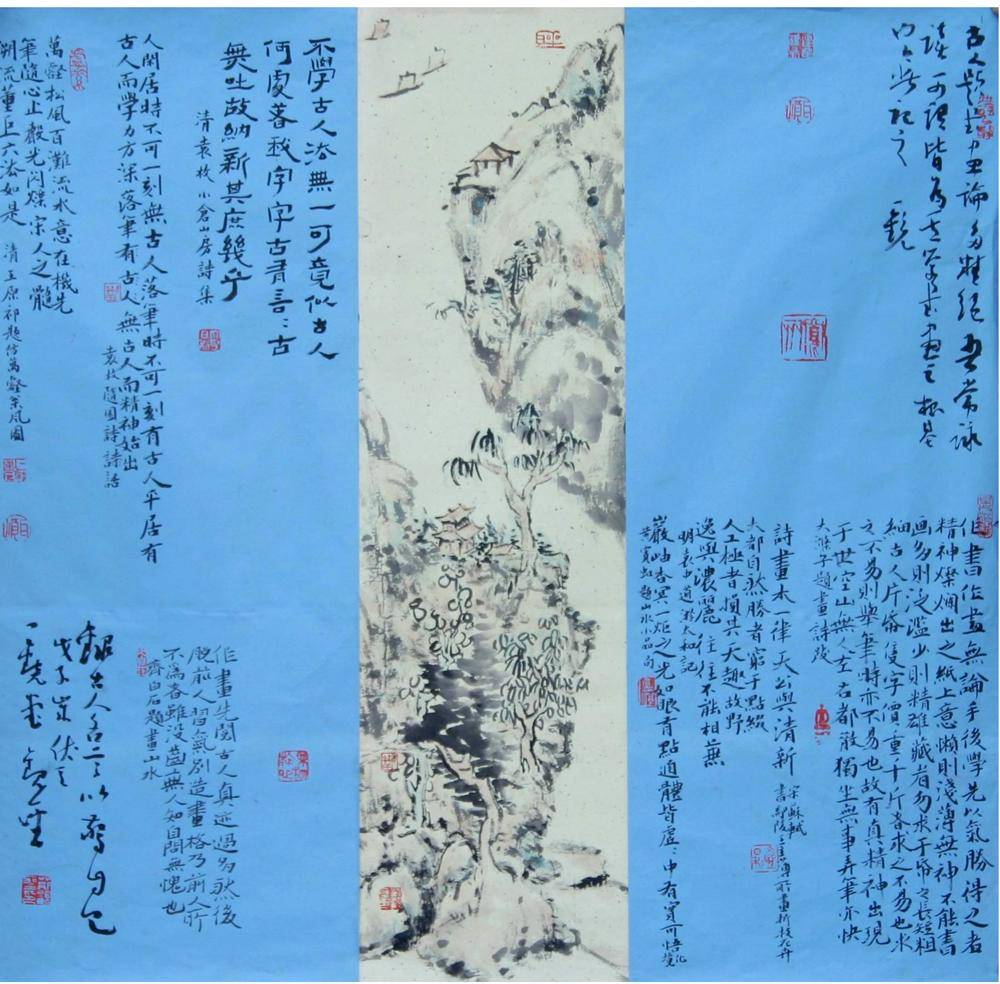 古人題畫論多精絕吾常詠
讀可謂皆為書畫之根基
記之
作書作畫無論手後學先以氣勝得之者
精神燦爛出之紙上意懶則淺薄無神不能書
画多則泛濫少則精雖藏者勿求于帋之長短粗
細古人片帋隻字價重千斤各求之不易也求
之不易則舉筆時亦不易也故有真精神出現
于世空山無人左右都散獨坐無事弄筆亦快
大滌子題畫詩跋
詩畫本一律天公與清新
宋蘇軾
書鄢陵王主簿所畫折枝
大都自然勝者窮于點綴
人工極者損其天趣故野
逸與濃麗往往不能相兼
明袁中道游太和記
巖岫杳冥一炬之光如眼有點通體皆虛:中有實可悟化
黃賓虹題山水小品句
不學古人法無一可竟似古人
何處著我字字古有言:古
無吐故納新其庶幾乎
清袁枚小倉山房詩集
人閑居時不可一刻無古人落筆時不可一刻有古人平居有
古人而學力方深落筆有古人無古人而精神始出
袁枚隨園詩話
萬壑松風百灘流水意在機先
筆隨心止嚴光閃爍宋人之髓
溯流董巨六法如是
清王原祁題仿萬壑松風圖
作畫先閱古人真迹過多然後
脫前人習氣別造畫格乃前人所
不為者雖沒齒無人知自問無愧也
齊白石題畫山水
錄古人名言以
戊子